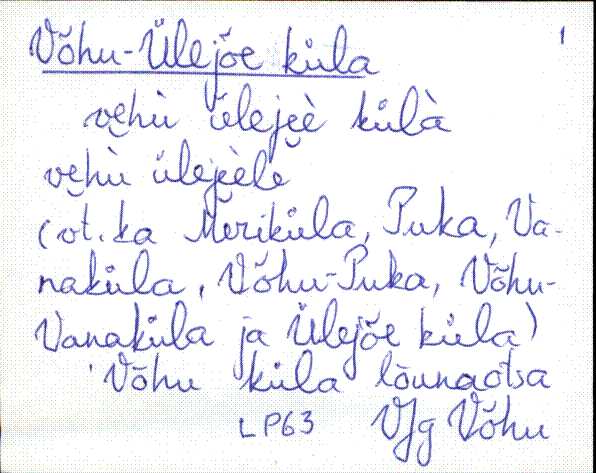 1
Võhu-Ülejõe küla
ve̮hù üleje̮è külà
ve̮hù üleje̮èle
(vt. ka Meriküla, Puka, Va-
naküla, Võhu-Puka, Võhu-
Vanaküla ja Ülejõe küla)
Võhu küla lõunaotsa
LP63 VJg Võhu